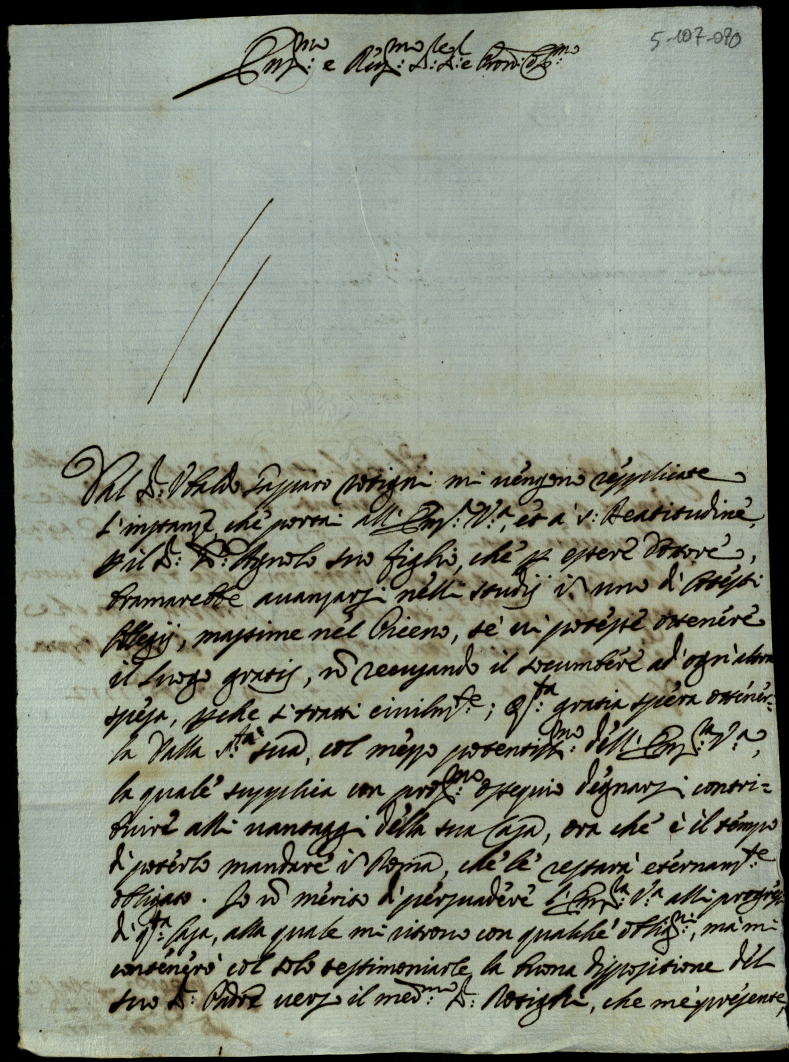 5-107-090
Em.mo e Rev.mo Sig.
Dal S.r Ubaldo Gasparo mi vengono réppplicate
l'instanze, ché portai all'Em.za V.a, et à S. Beatitudiné,
p il S.r D. Agnolo suo figlio, ché p esseré Dottoré,
bramarebbe avanzarsi nélli studij in uno di cotésti
Collegij, massime nél Picéno, sé vi potéssé ottenéré
il luogo gratis, nõ recusando il socumberé ad ogn'altra
spésa, pche si tratti civilm.te; q.ta gratia spéra ottener-
la dalla S.tà sua, col mézzo potentiss.mo déll'Em.za V.a,
la qualé supplica con prof.mo ossequio dégnarsi contri-
buiré alli vantaggi délla sua Casa, ora ché è il témpo
di potérlo mandaré in Roma, ché lé restarà etérnam.te
obligato. Io nõ mérito di pérsuadéré l'Em.za V.a alli progréssi
di q.ta Casa, alla quale mi ritrovo con qualché oblig.ne, mà mi
conténérò col solo testimoniarle la buona dispositione dél
suo S.r Padré verso il med.mo S.r, che m'é présente,